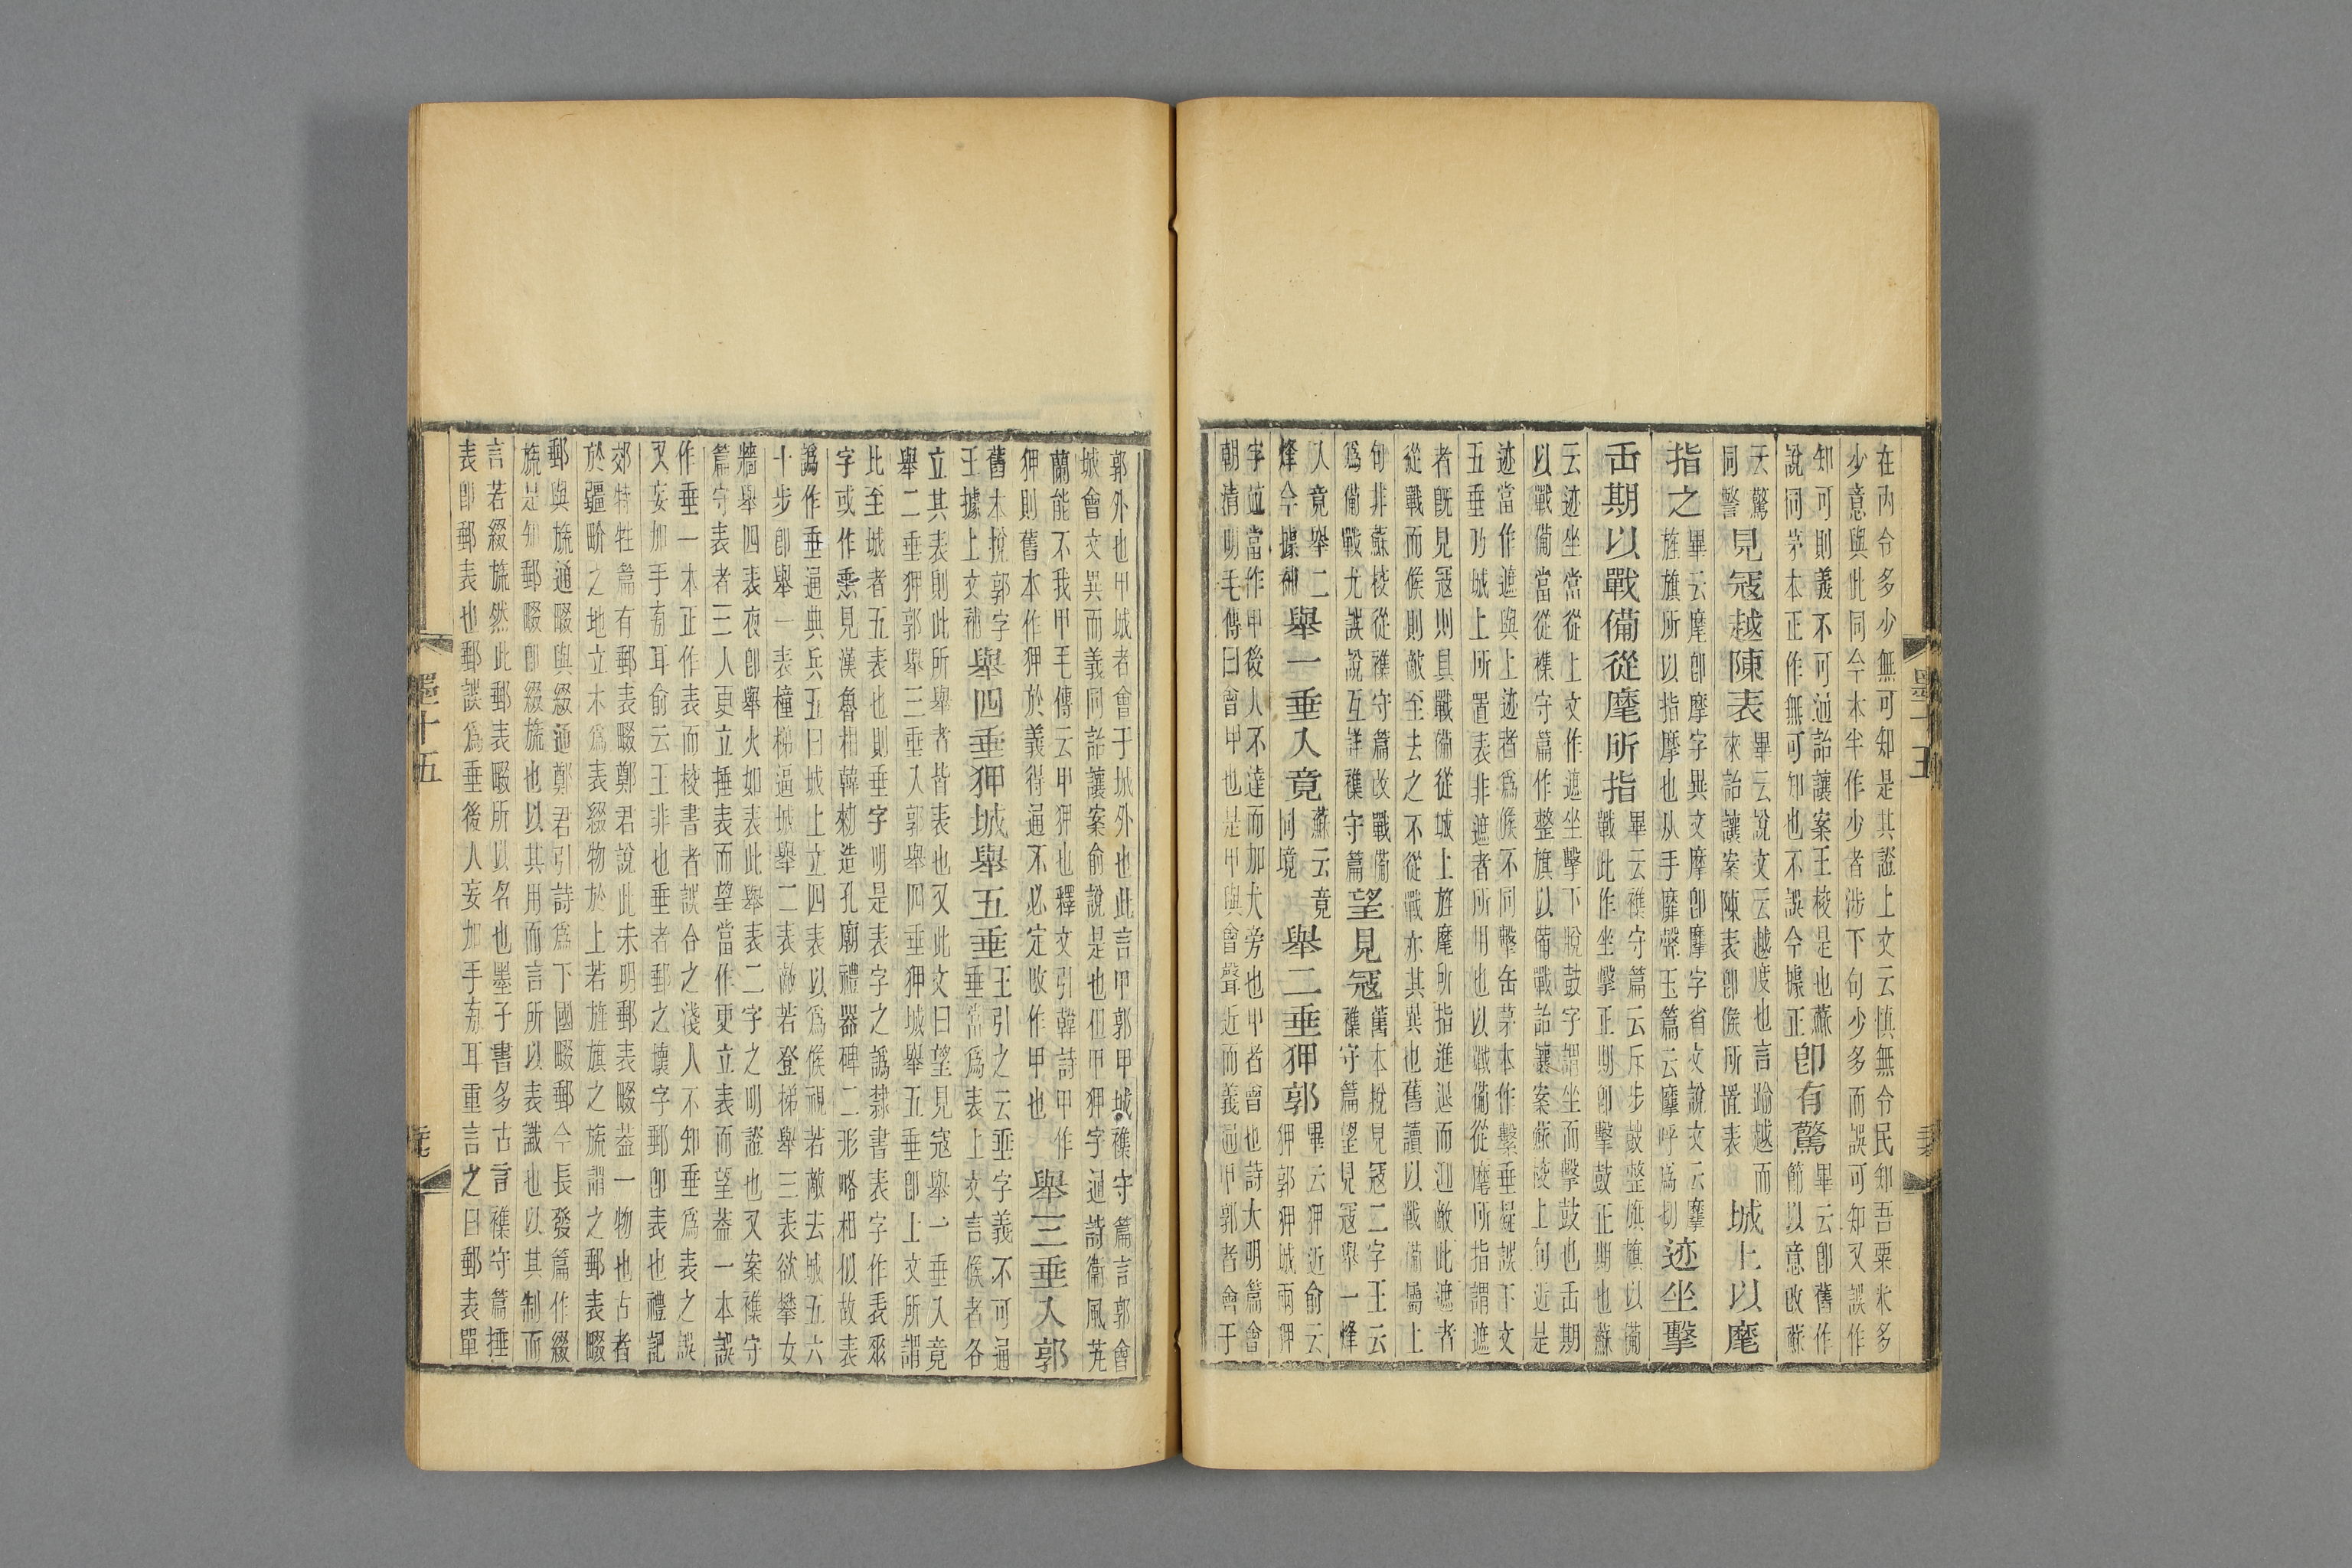 在內令多少無可知是其證上文云慎無令民知吾粟米多
少意與此同今本半作少者涉下句少多而誤可知又誤作
知可則義不可通詒讓案王校是也蘇
說同茅本正作無可知也不誤今據正
卽有驚
畢云卽舊作
節以意改蘇
云驚
同警
見寇越陳表
畢云說文云越度也言踰越而
來詒讓案陳表卽候所置表
城上以麾
指之
畢云麾卽摩字異文摩卽摩字省文說文云摩
旌旗所以指摩也从手靡聲玉篇云摩呼爲切
迹坐擊
缶期以戰備從麾所指
畢云襍守篇云斥步鼓整旗旗以備
戰此作坐擊正期卽擊鼓正期也蘇
云迹坐當從上文作遮坐擊下脫鼓字謂坐而擊鼓也缶期
以戰備當從襍守篇作整旗以備戰詒讓案蘇校上句近是
迹當作遮與上迹者爲候不同擊缶茅本作繫垂疑誤下文
五垂乃城上所置表非遮者所用也以戰備從麾所指謂遮
者旣見寇則具戰備從城上旌麾所指進退而迎敵此遮者
從戰而候則敵至去之不從戰亦其異也舊讀以戰備屬上
句非蘇校從襍守篇改戰備
爲備戰尤誤說互詳襍守篇
望見寇
舊本挩見寇二字王云
襍守篇望見寇舉一烽
入竟舉二
烽今據補
舉一垂入竟
蘇云竟
同境
舉二垂狎郭
畢云狎近俞云
狎郭狎城兩狎
字並當作甲後人不達而加犬旁也甲者會也詩大明篇會
朝清明毛傳曰會甲也是甲與會聲近而義通甲郭者會于
郭外也甲城者會于城外也此言甲郭甲城襍守篇言郭會
城會文異而義同詒讓案俞說是也但甲狎字通詩衞風芄
蘭能不我甲毛傳云甲狎也釋文引韓詩甲作
狎則舊本作狎於義得通不必定改作甲也
舉三垂入郭
舊本挩郭字
王據上文補
舉四垂狎城舉五垂
王引之云垂字義不可通
垂當爲表上文言候者各
立其表則此所舉者皆表也又此文曰望見寇舉一垂入竟
舉二垂狎郭舉三垂入郭舉四垂狎城舉五垂卽上文所謂
比至城者五表也則垂字明是表字之譌隸書表字作表𠂹
字或作𠂹見漢魯相韓勑造孔廟禮器碑二形略相似故表
譌作垂通典兵五曰城上立四表以爲候視若敵去城五六
十步卽舉一表橦梯逼城舉二表敵若登梯舉三表欲攀女
牆舉四表夜卽舉火如表此舉表二字之明證也又案襍守
篇守表者三人更立捶表而望當作更立表而望葢一本誤
作垂一本正作表而校書者誤合之淺人不知垂爲表之誤
又妄加手旁耳俞云王非也垂者郵之壞字郵卽表也禮記
郊特牲篇有郵表畷鄭君說此未明郵表畷葢一物也古者
於疆畍之地立木爲表綴物於上若旌旗之旒謂之郵表畷
郵與旒通畷與綴通鄭君引詩爲下國畷郵今長發篇作綴
旒是知郵畷卽綴旒也以其用而言所以表識也以其制而
言若綴旒然此郵表畷所以名也墨子書多古言襍守篇捶
表卽郵表也郵誤爲垂後人妄加手旁耳重言之曰郵表單
墨十五
墨十五